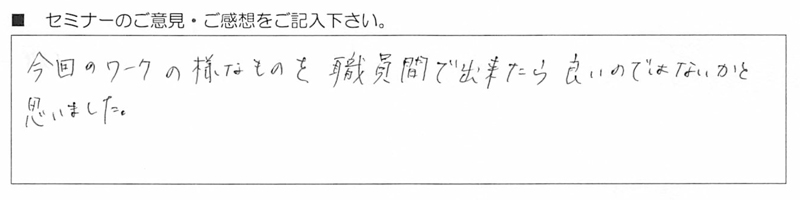 ■ セミナーのご意見・ご感想をご記入下さい。
今回のワークの様なものを 職員間で出来たら 良いのではないかと
思いました。